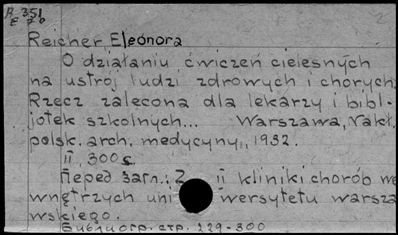 A 351
E 70
2
Reicher Eleonora
O działaniu ćwiczeń cielesnych
na ustrój ludzi zdrowych i chorych.
Rzecz zalecona dla lekarzy i bibl-
jotek szkolnych... Warszawa, Nakł.
polsk. arch. medycyny, 1932.
II, 300 с
Перед загл.: Z II kliniki chorób we
wnętrzych uni wersytetu warsza
wskiego.
Библиогр. стр. 229-300